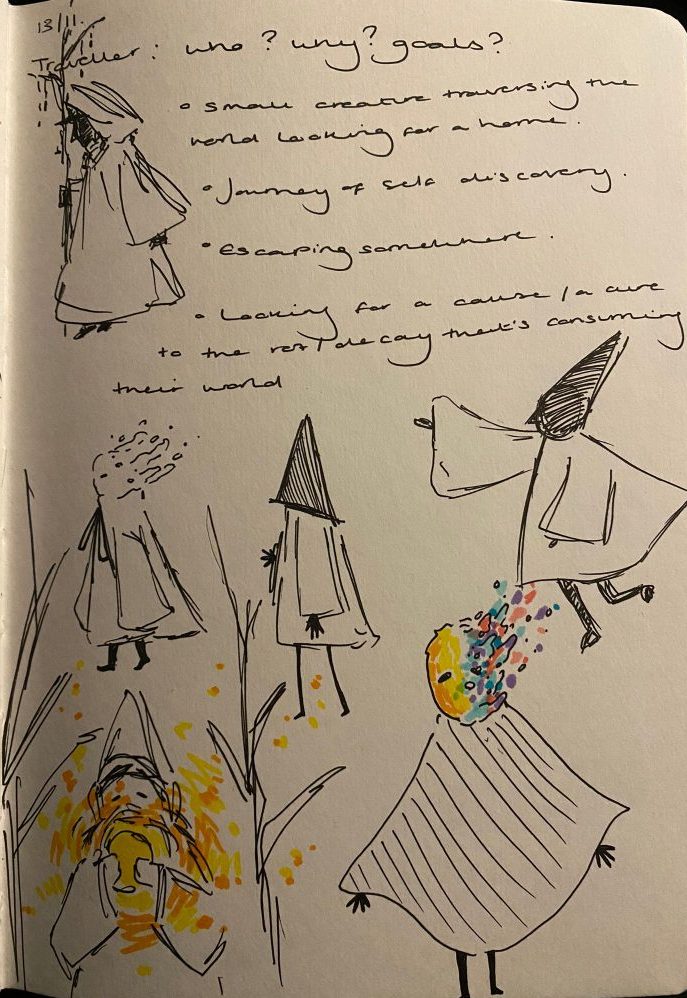 13/11.
Traveller: who? why? goals?
• small creature traversing the
world looking for a home.
• Journey of self discovery.
• Escaping somewhere.
• Looking for a cause / a cure
to the rot/decay that's consuming
their world